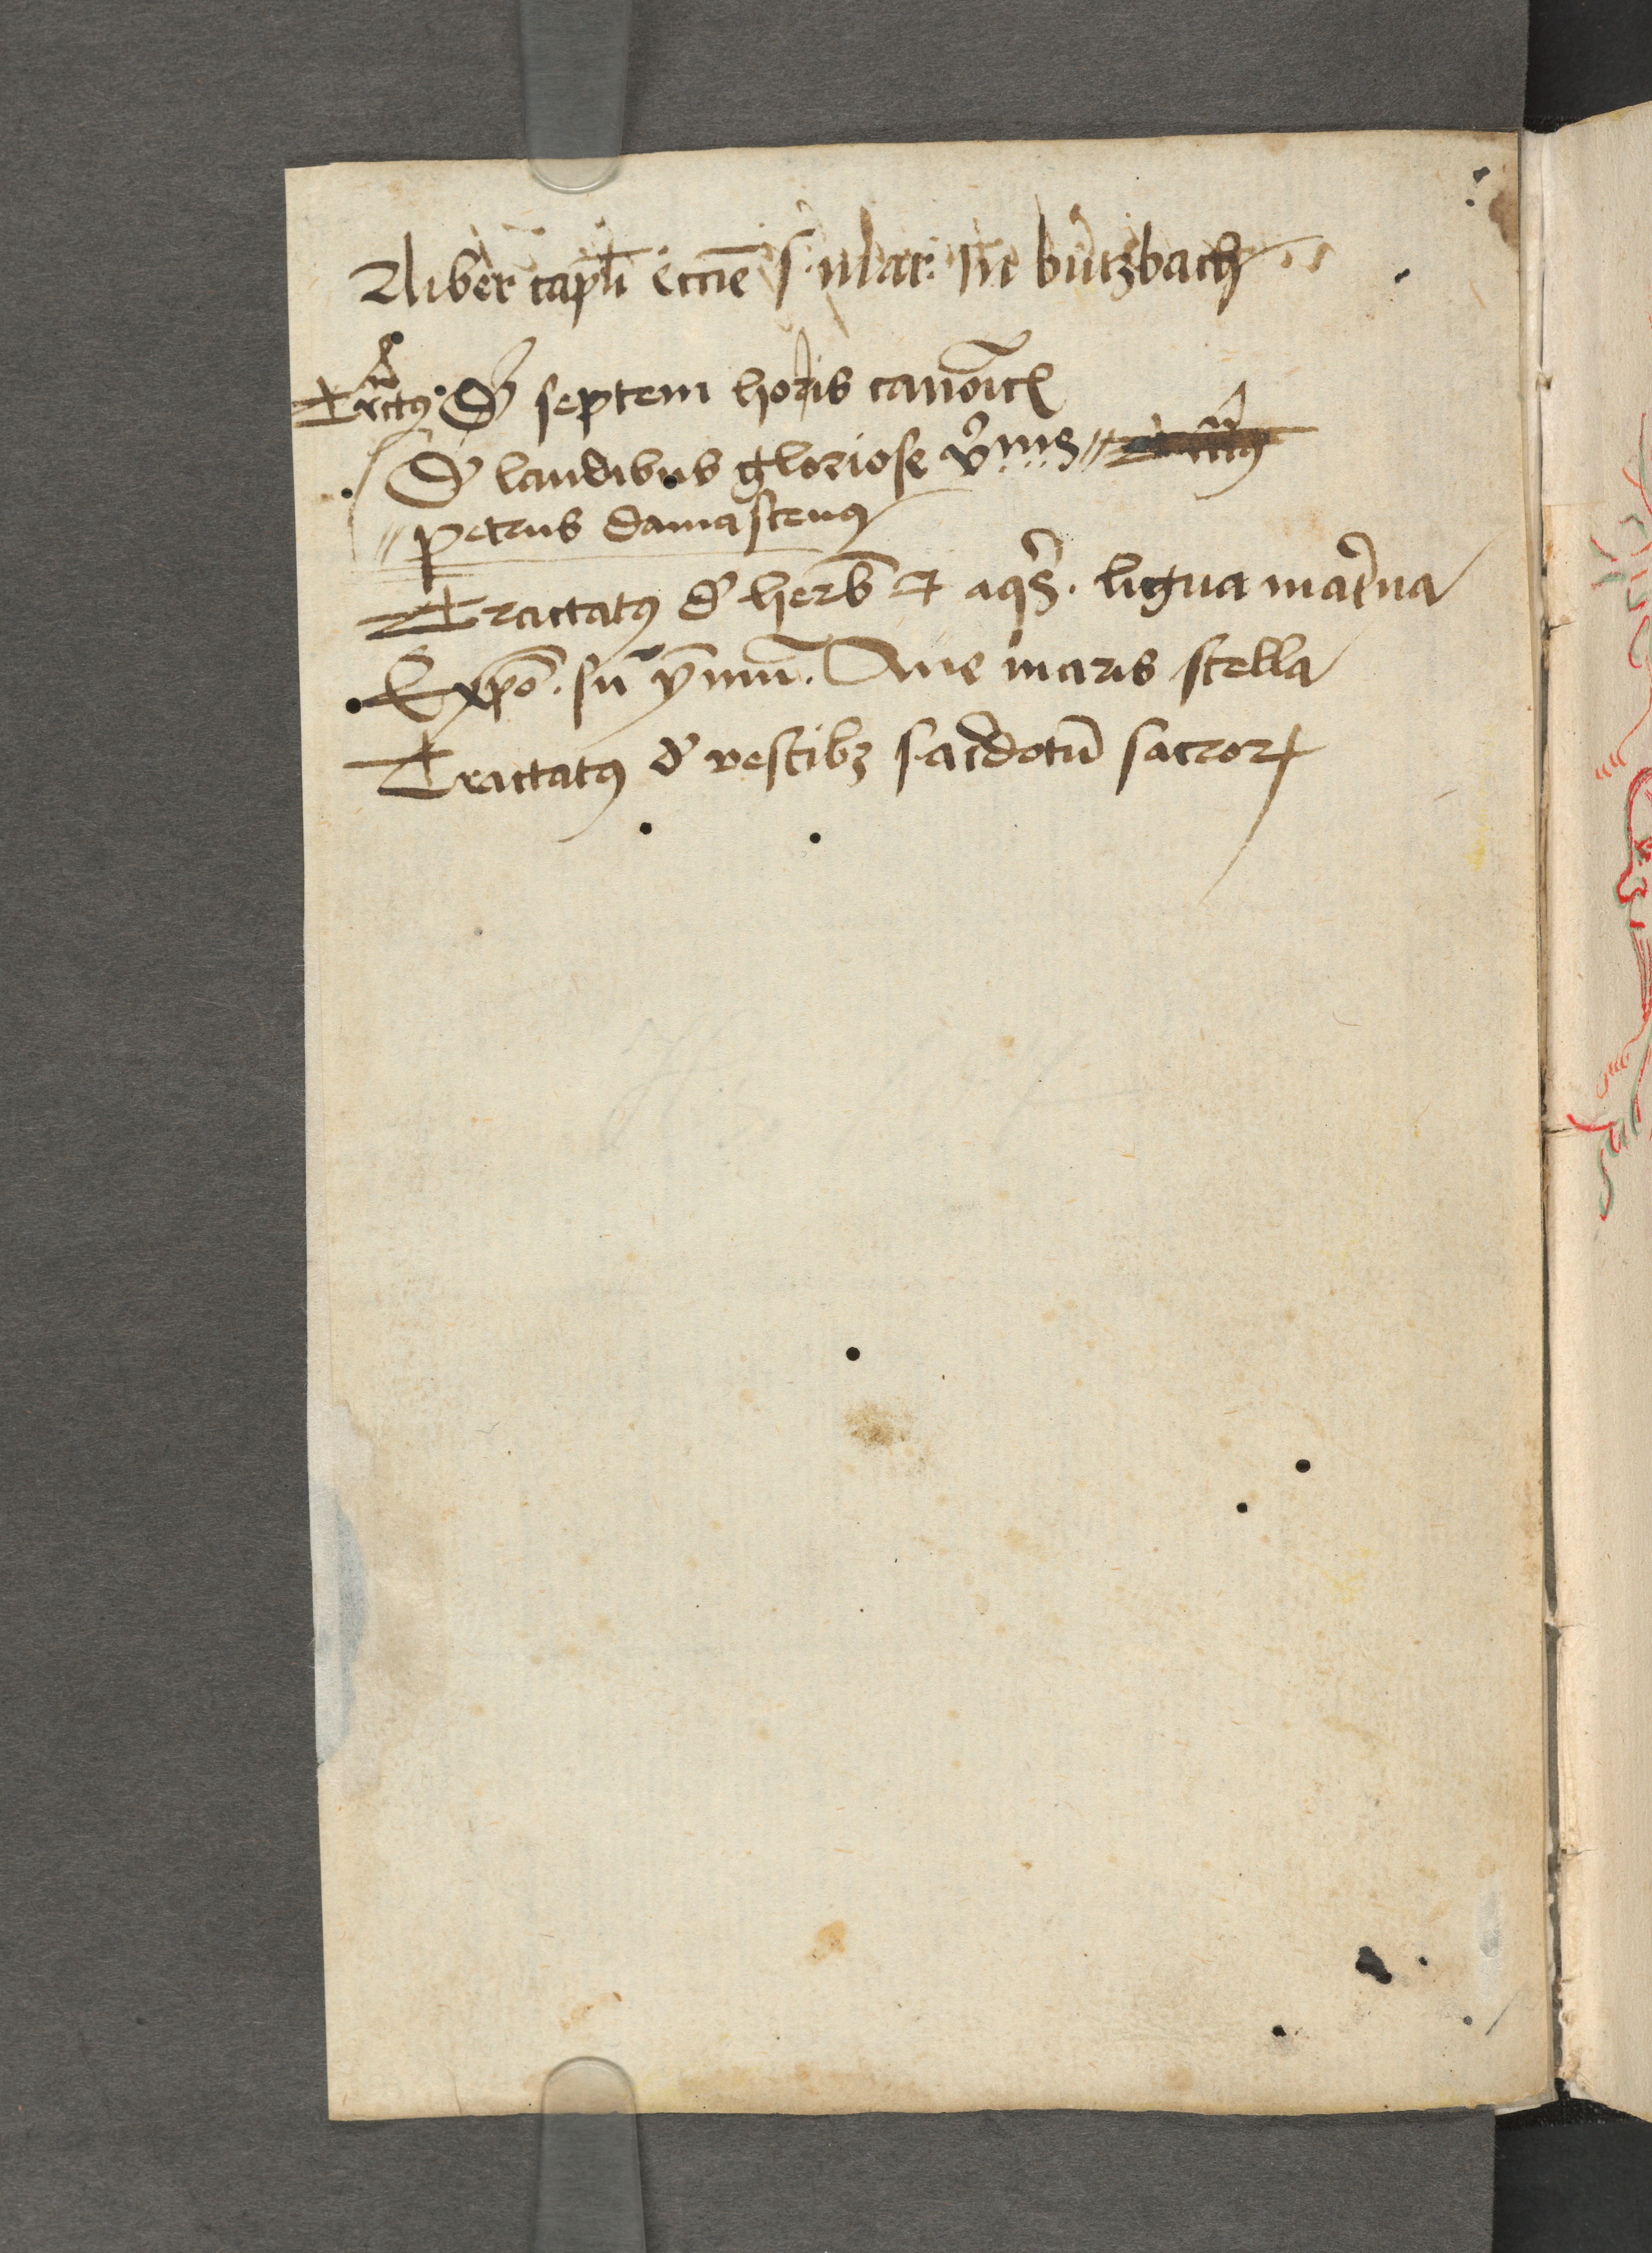 Liber capłi eccīe s. marc: in butzbach
Trctꝰ. De septem horis canoīcꝭ
De laudibus gloriose v̄ginis
petrus damascenꝰ
Tractatꝰ de herb̄ et aqs̄. ligua mat̄na
Expō. sup̄ ymnū. Aue maris stella
Tractatꝰ de vestibꝫ sac̄dotū sacroꝝ